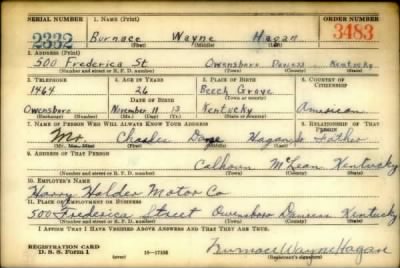 SERIAL NUMBER 1. NAME (Print) ORDER NUMBER
2332 Burnace Wayne Hagan 3483
(First) (Middle) (Last)
2. ADDRESS (Print)
500 Frederica St Owensboro Daviess Kentucky
(Number and street or R. F. D. number) (Town) (County) (State)
3. TELEPHONE 4. AGE IN YEARS 5. PLACE OF BIRTH 6. COUNTRY OF CITIZENSHIP
1464 26 Beech Grove
DATE OF BIRTH (Town or county)
Owensboro November 11 13 Kentucky American
(Exchange) (Number) (Mo.) (Day) (Yr.) (State or country)
7. NAME OF PERSON WHO WILL ALWAYS KNOW YOUR ADDRESS 8. RELATIONSHIP OF THAT PERSON
Mr. Charles Hagan Father
(Mr., Mrs., Miss) (First) (Middle) (Last)
9. ADDRESS OF THAT PERSON
Calhoun McLean Kentucky
(Number and street or R. F. D. number) (Town) (County) (State)
10. EMPLOYER'S NAME
Harry Holder Motor Co
11. PLACE OF EMPLOYMENT OR BUSINESS
500 Frederica Street Owensboro Daviess Kentucky
(Number and street or R. F. D. number) (Town) (County) (State)
I AFFIRM THAT I HAVE VERIFIED ABOVE ANSWERS AND THAT THEY ARE TRUE.
REGISTRATION CARD
D. S. S. Form 1 (over) 16—17105 Burnace Wayne Hagan
(Registrant's signature)